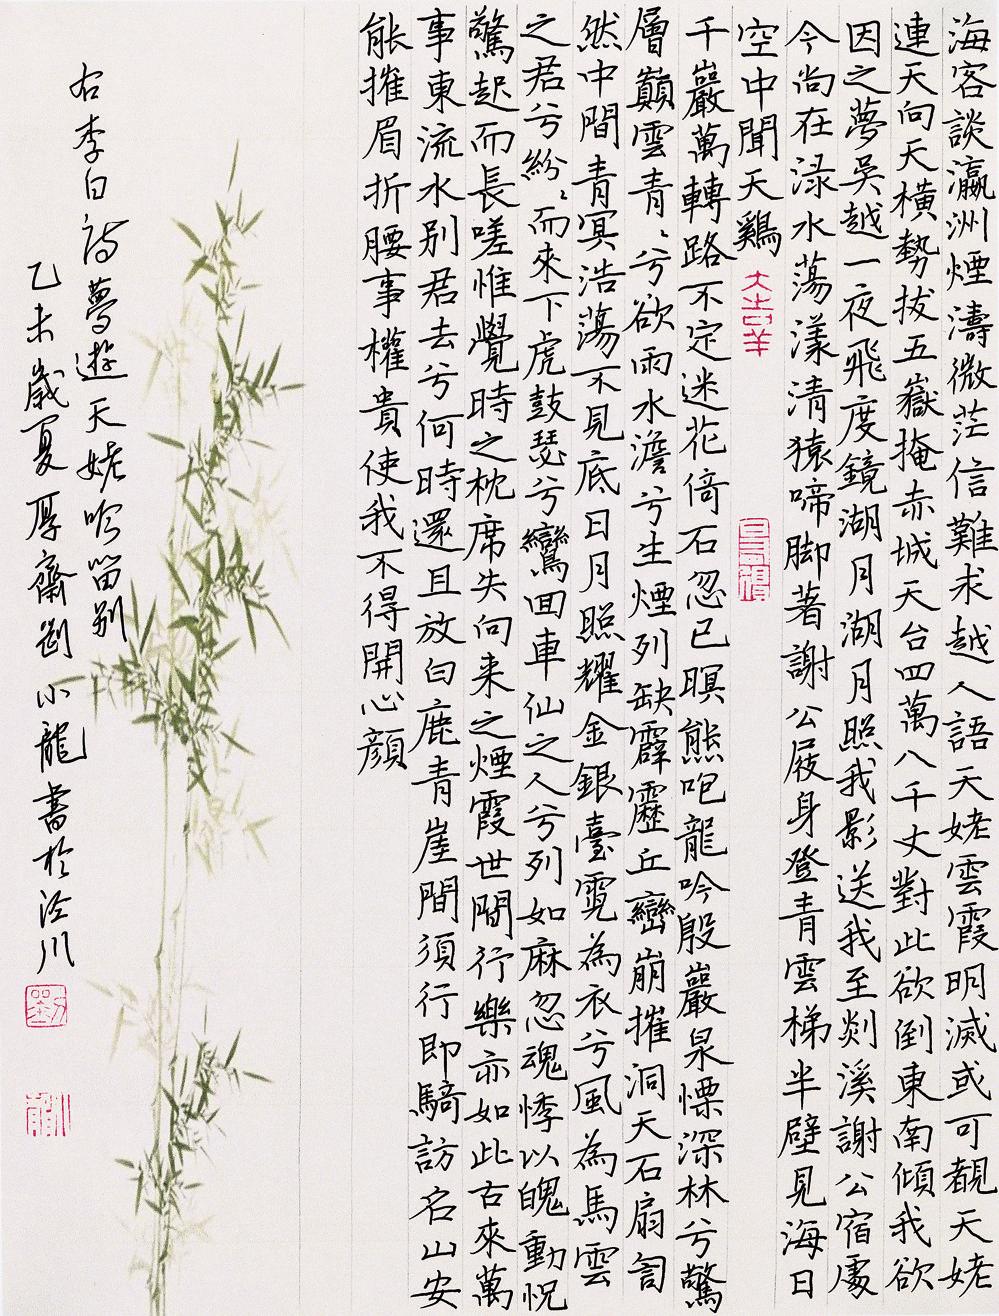 海客談瀛洲煙濤微茫信難求越人語天姥雲霞明滅或可覩天姥
連天向天橫勢拔五嶽掩赤城天台四萬八千丈對此欲倒東南傾我欲
因之夢吳越一夜飛度鏡湖月湖月照我影送我至剡溪謝公宿處
今尚在渌水蕩漾清猿啼脚著謝公屐身登青雲梯半壁見海日
空中聞天鷄
千巖萬轉路不定迷花倚石忽已暝熊咆龍吟殷巖泉慄深林兮驚
層巔雲青〻兮欲雨水澹兮生煙列缺霹靂丘巒崩摧洞天石扇訇
然中間青冥浩蕩不見底日月照耀金銀臺霓為衣兮風為馬雲
之君兮紛〻而來下虎鼓瑟兮鸞回車仙之人兮列如麻忽魂悸以魄動怳
驚起而長嗟惟覺時之枕席失向来之煙霞世間行樂亦如此古來萬
事東流水別君去兮何時還且放白鹿青崖間須行即騎訪名山安
能摧眉折腰事權貴使我不得開心顔
右李白詩夢遊天姥吟留别
乙未歲夏厚齋劉小龍書於泾川
大吉羊
劉